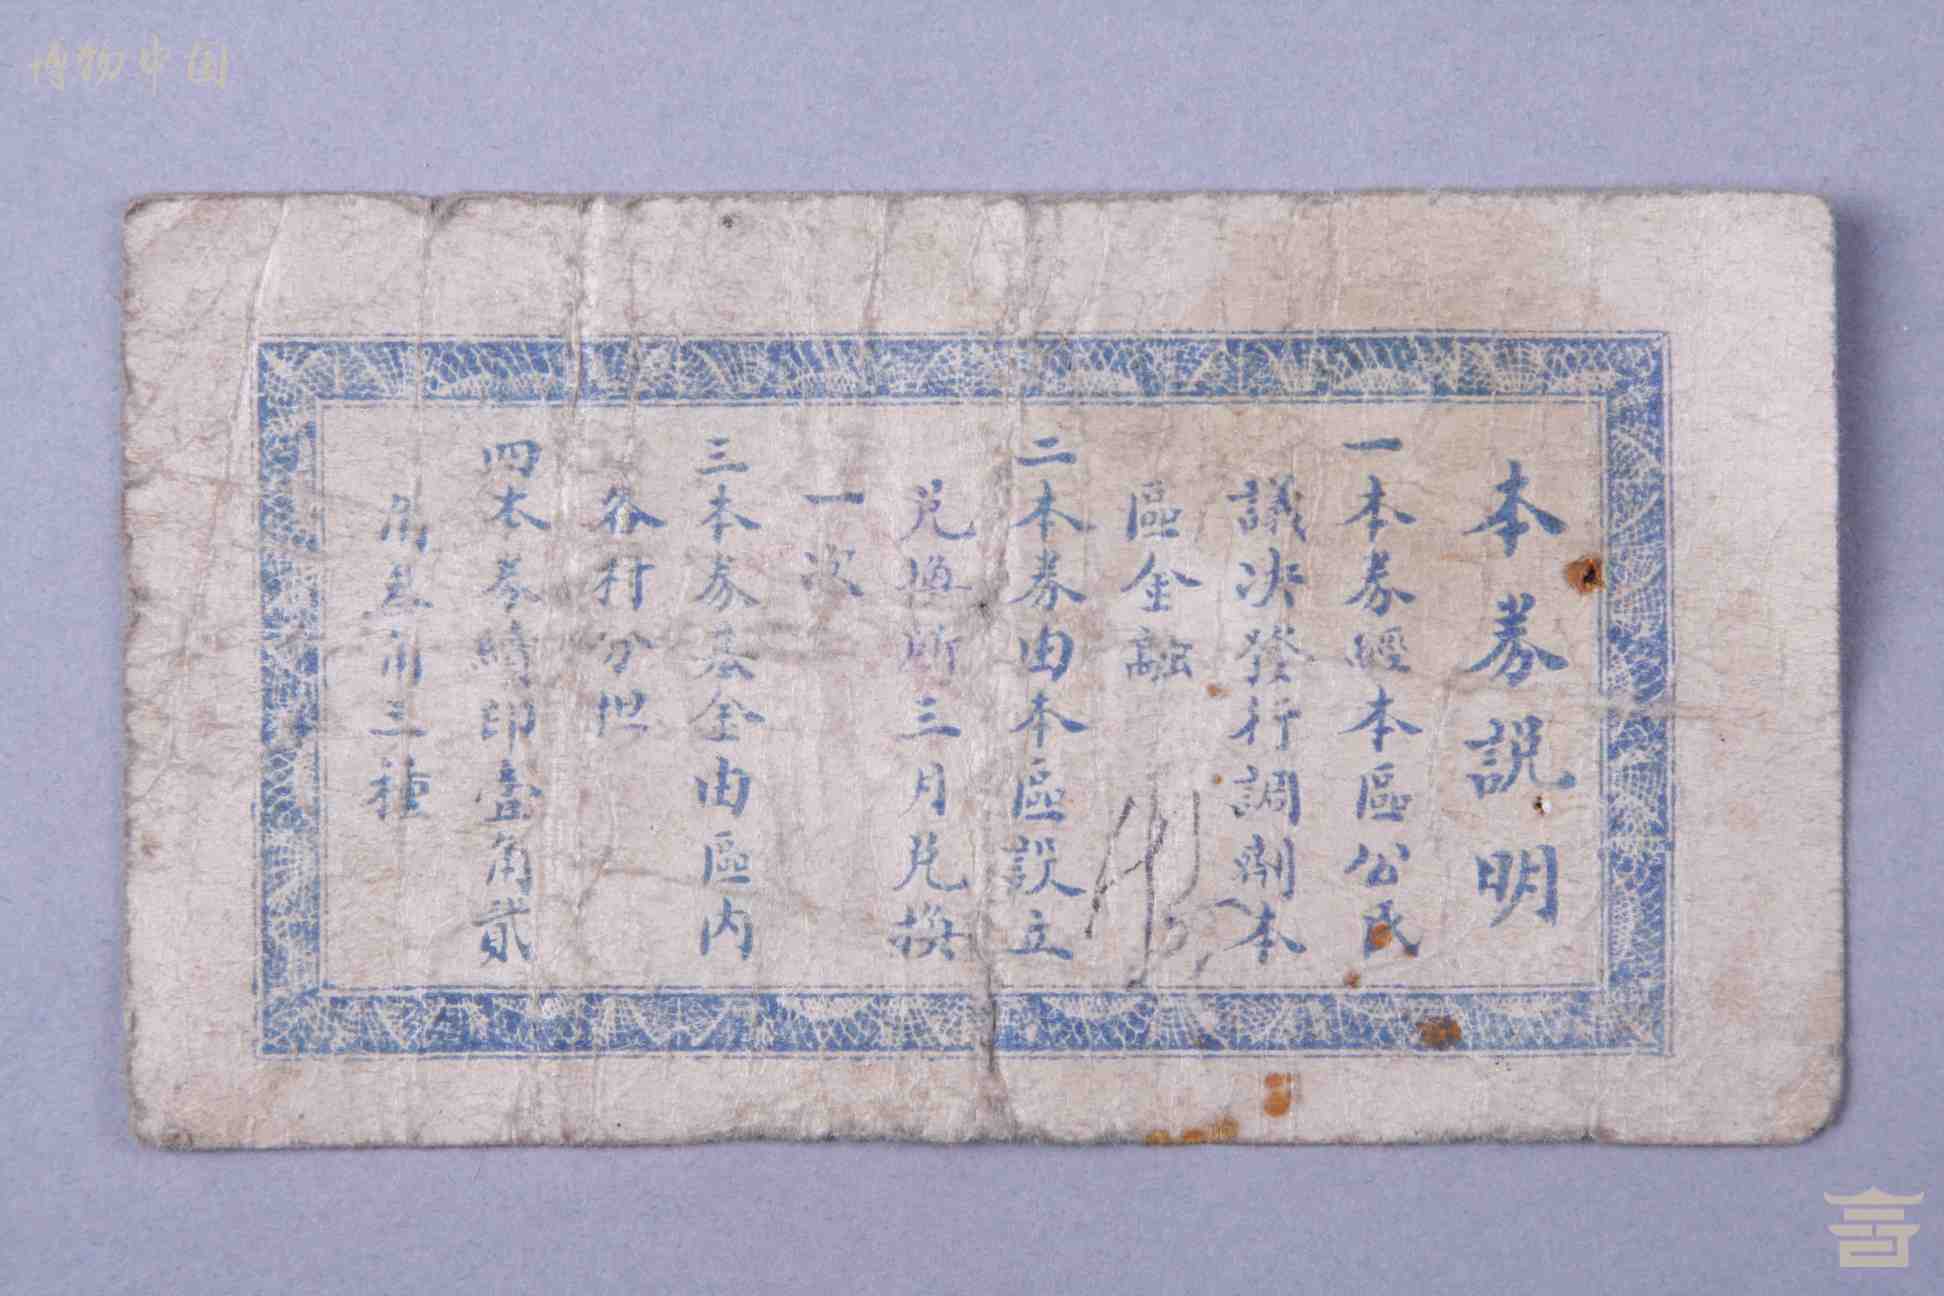 博物中国
本券説明
一本券經本區公民
議决發行調劑本
區金融
二本券由本區設立
兑換所三月兑換
一次
三本券基金由區内
各村分担
四本券續印壹角貳
角叁角三種